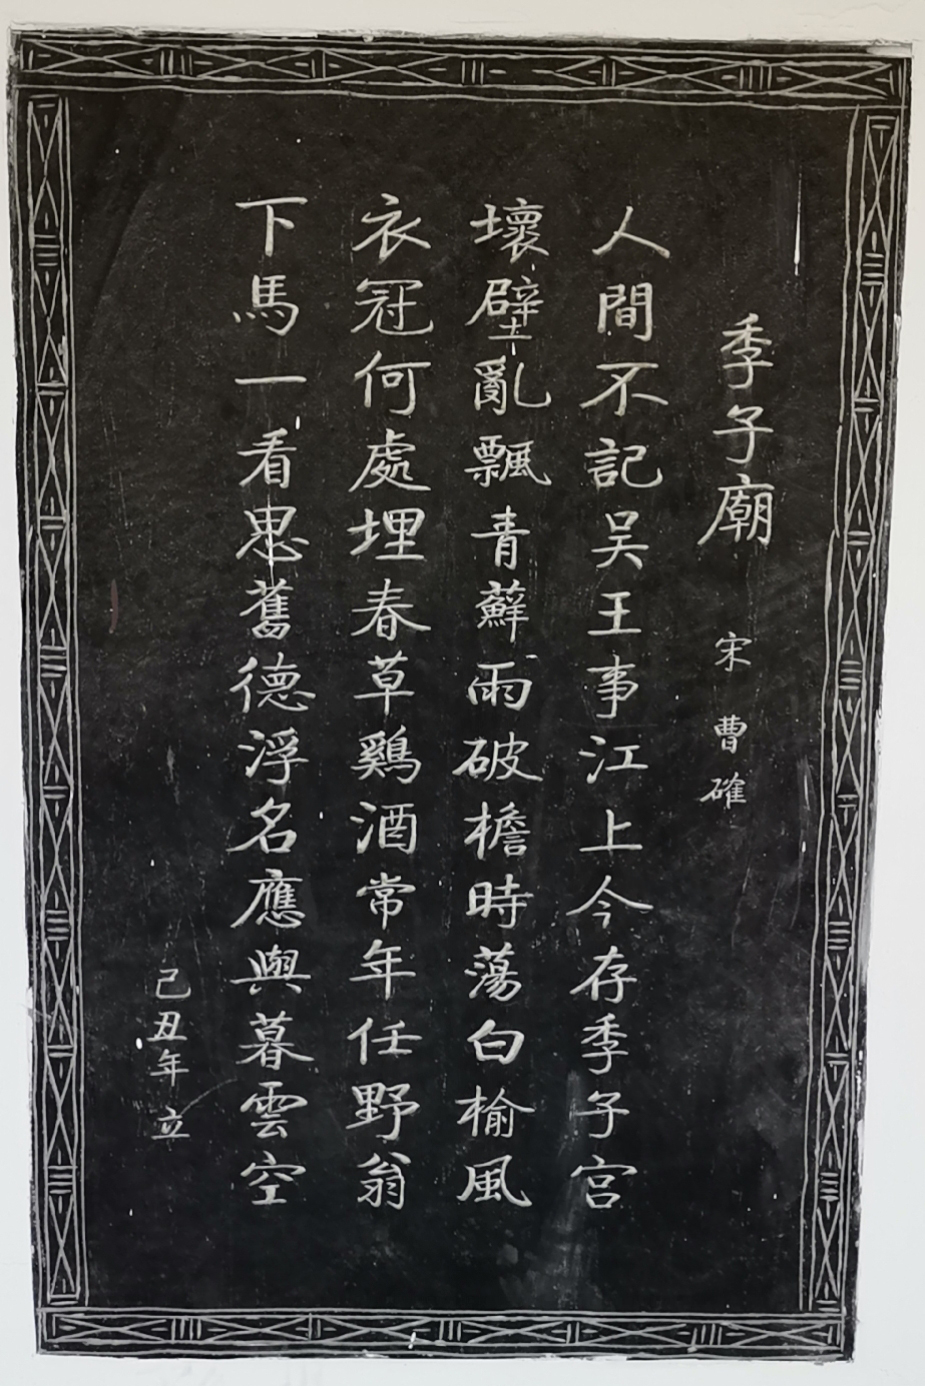 季子廟 宋 曹確
人間不記吴王事江上今存季子宫
壞壁亂飄青蘚雨破檐時蕩白榆風
衣冠何處埋春草鷄酒常年任野翁
下馬一看思舊德浮名應與暮雲空
己丑年立